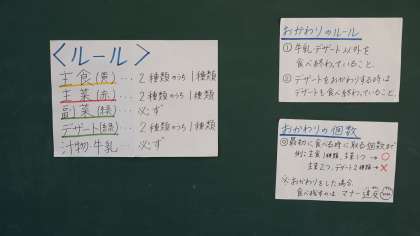 ＜ルール＞
主食(黄)… 2種類のうち1種類
主菜(赤)… 2種類のうち1種類
副菜(緑)… 必ず
デザート(緑)… 2種類のうち1種類
汁物・牛乳… 必ず
おかわりのルール
① 牛乳、デザート以外を
食べ終わっていること。
② デザートをおかわりする時は
デザートも食べ終わっていること。
おかわりの個数
◎最初に食べる時に取る個数まで
例：主食1種類、主菜1つ → ○
主菜2つ、デザート2種類 → ×
※おかわりをした場合、
食べ残すのは マナー違反